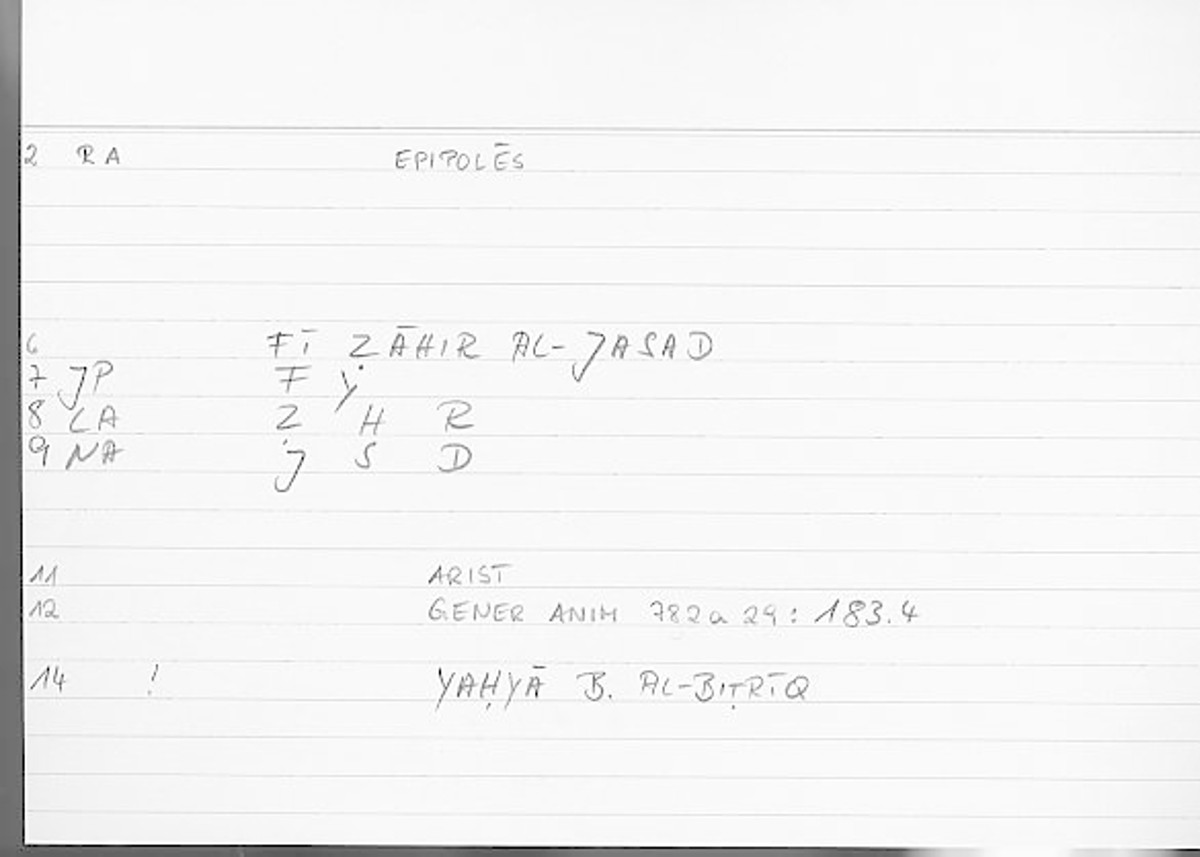 2 RA EPIPOLĒS
6 FĪ ẒĀHIR AL-JASAD
7 JP F Y
8 LA Ẓ H R
9 NA J S D
11 ARIST
12 GENER ANIM 782a 29: 183.4
14 ! YAḤYĀ B. AL-BIṬRĪQ